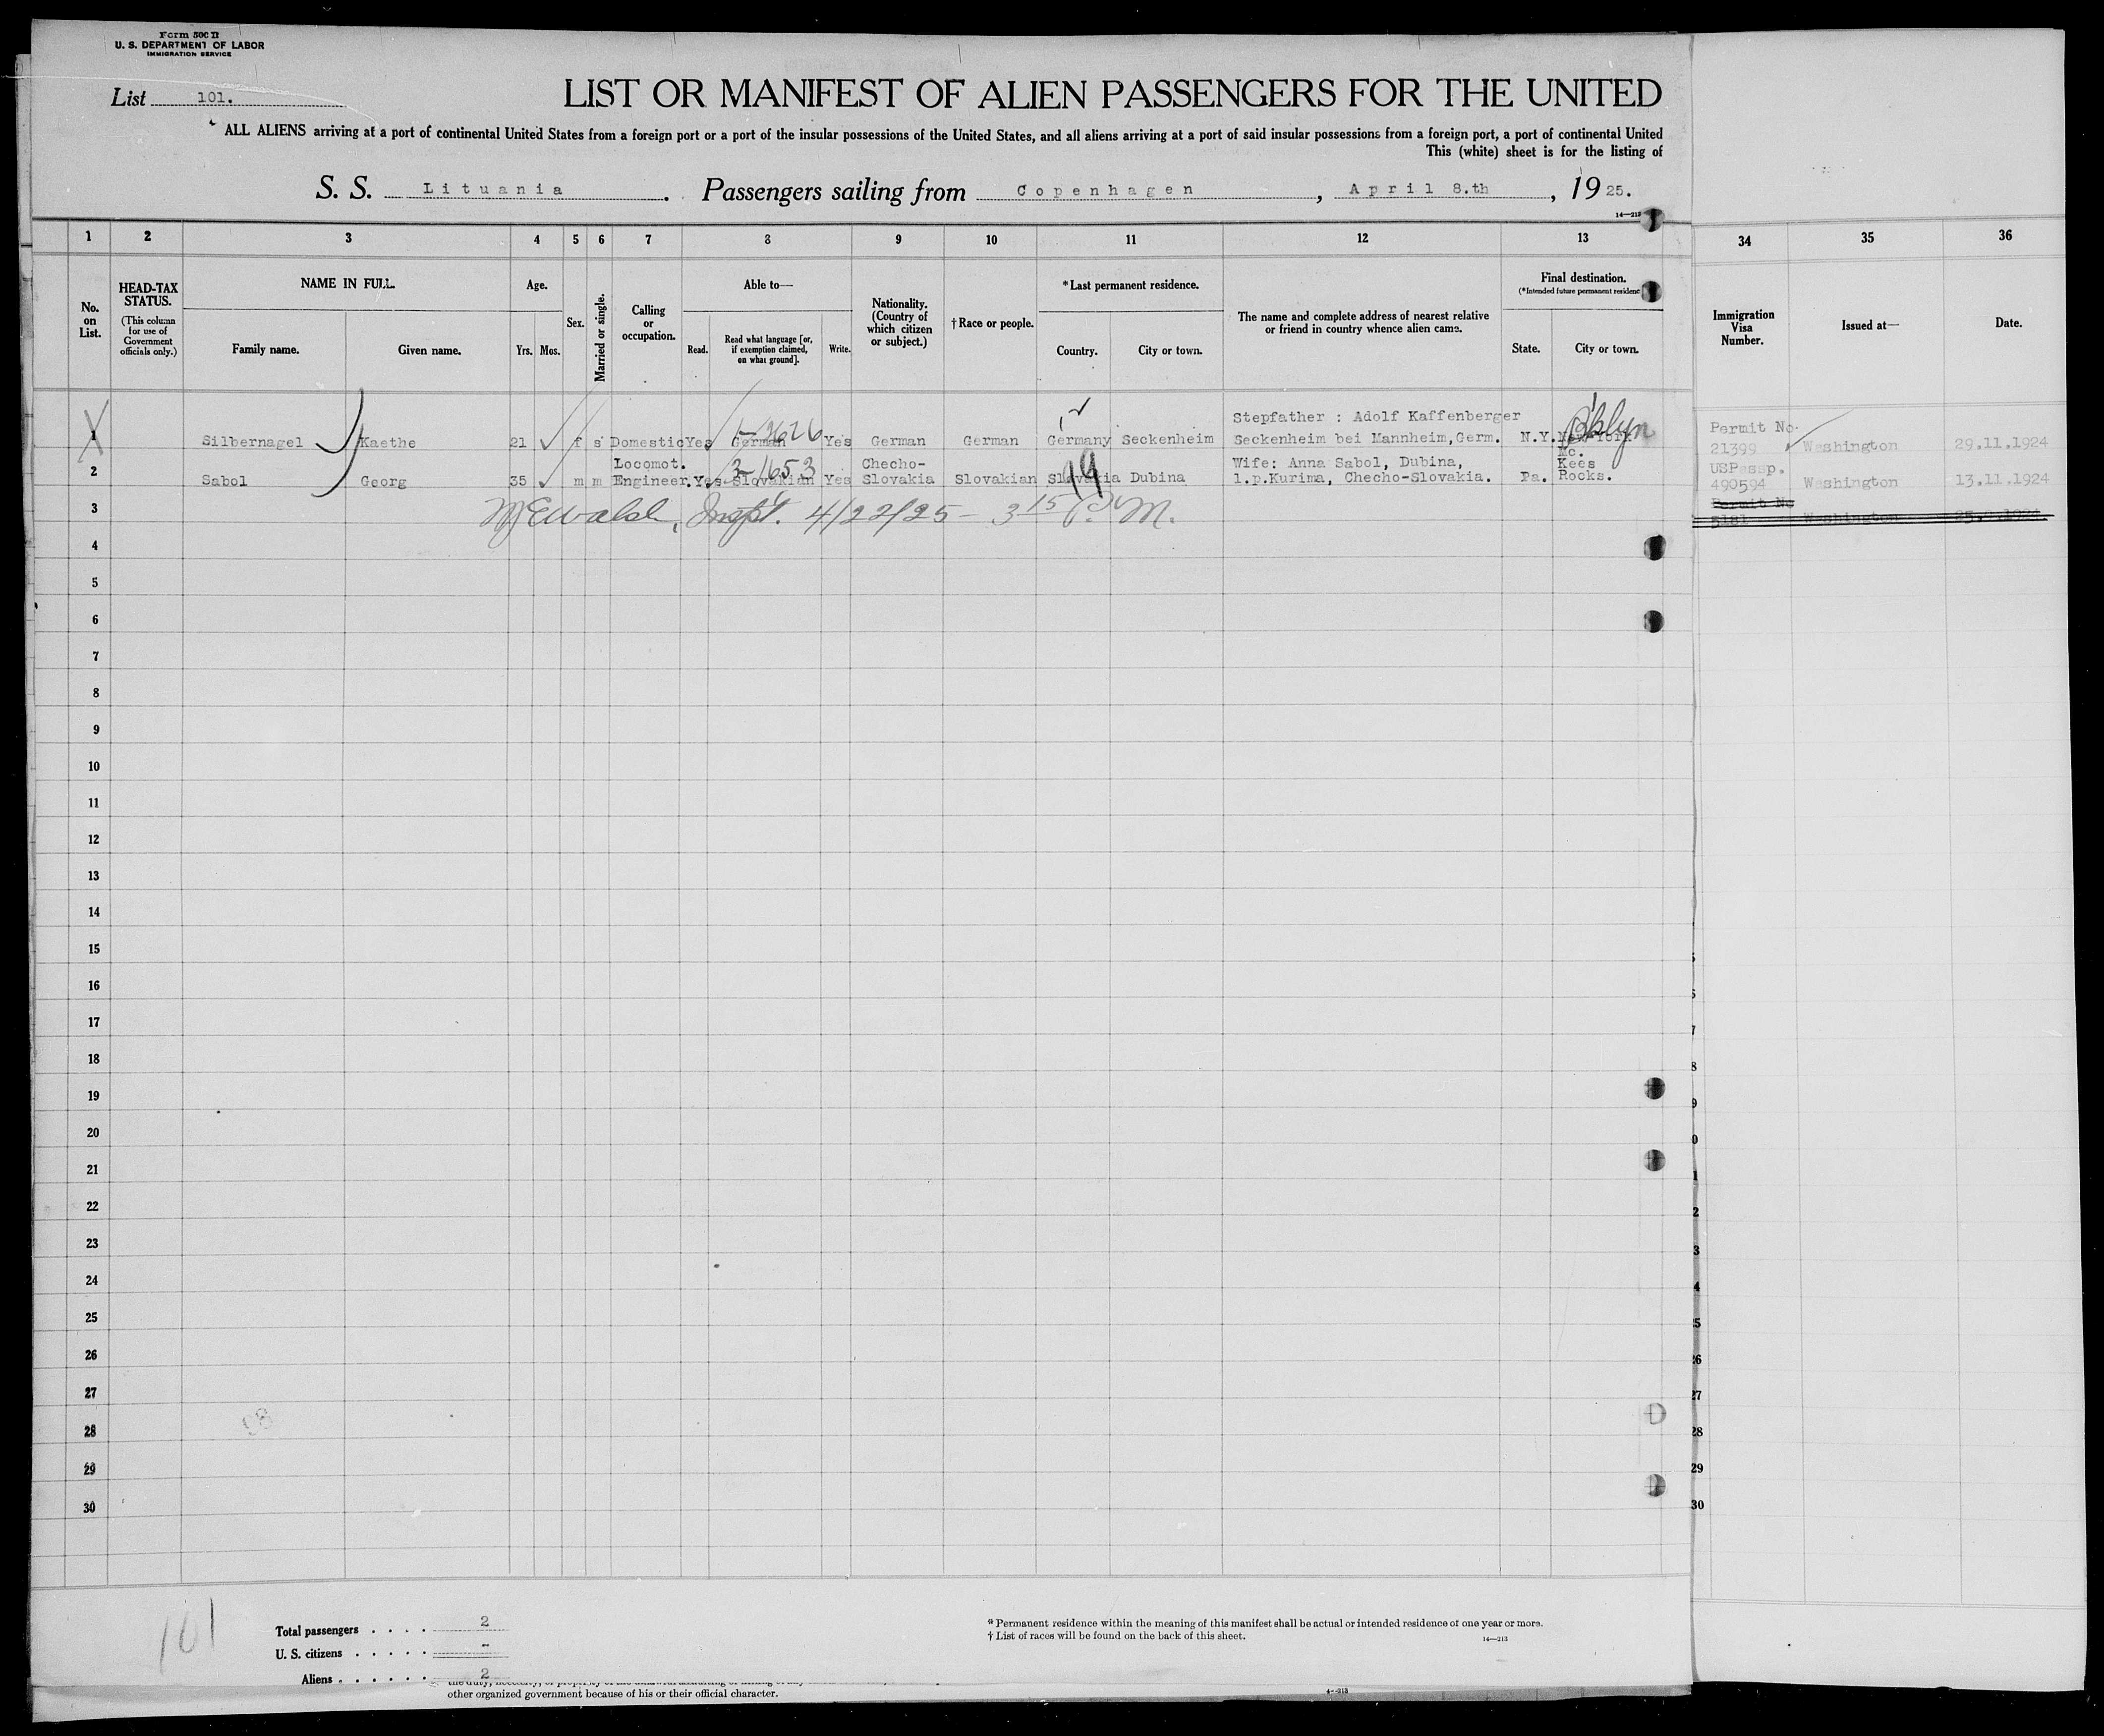 Form 500 II
U. S. DEPARTMENT OF LABOR
IMMIGRATION SERVICE
List 101.
LIST OR MANIFEST OF ALIEN PASSENGERS FOR THE UNITED
ALL ALIENS arriving at a port of continental United States from a foreign port or a port of the insular possessions of the United States, and all aliens arriving at a port of said insular possessions from a foreign port, a port of continental United
This (white) sheet is for the listing of
S. S. Lituania. Passengers sailing from Copenhagen, April 8.th, 1925.
14—213
1 2 3 4 5 6 7 8 9 10 11 12 13 34 35 36
No. on List.
HEAD-TAX STATUS.
(This column for use of Government officials only.)
NAME IN FULL.
Family name. Given name.
Age.
Yrs. Mos.
Sex.
Married or single.
Calling or occupation.
Able to—
Read. Read what language [or, if exemption claimed, on what ground]. Write.
Nationality. (Country of which citizen or subject.)
† Race or people.
* Last permanent residence.
Country. City or town.
The name and complete address of nearest relative or friend in country whence alien came.
Final destination.
(* Intended future permanent residenc
State. City or town.
Immigration Visa Number.
Issued at—
Date.
Stepfather : Adolf Kaffenberger B'klyn Permit No.
1 Silbernagel Kaethe 21 f s Domestic Yes German 1-3626 Yes German German Germany Seckenheim Seckenheim bei Mannheim,Germ. N.Y. New York 21399 Washington 29.11.1924
Locomot. 3-1653 Checho- Wife: Anna Sabol, Dubina, Mc. Kees USPassp.
2 Sabol Georg 35 m m Engineer. Yes Slovakian Yes Slovakia Slovakian Slovakia Dubina l.p.Kurima, Checho-Slovakia. Pa. Rocks. 490594 Washington 13.11.1924
3 Inspt. 4/22/25 – 3 15 P. M. Permit No
5181 Washington
4
5
6
7
8
9
10
11
12
13
14
15
16
17
18
19
20
21
22
23
24
25
26
27
28
29
30
98
101
Total passengers . . . . 2
U. S. citizens . . . . . -
Aliens . . . . . . 2
* Permanent residence within the meaning of this manifest shall be actual or intended residence of one year or more.
† List of races will be found on the back of this sheet.
14—213
other organized government because of his or their official character.